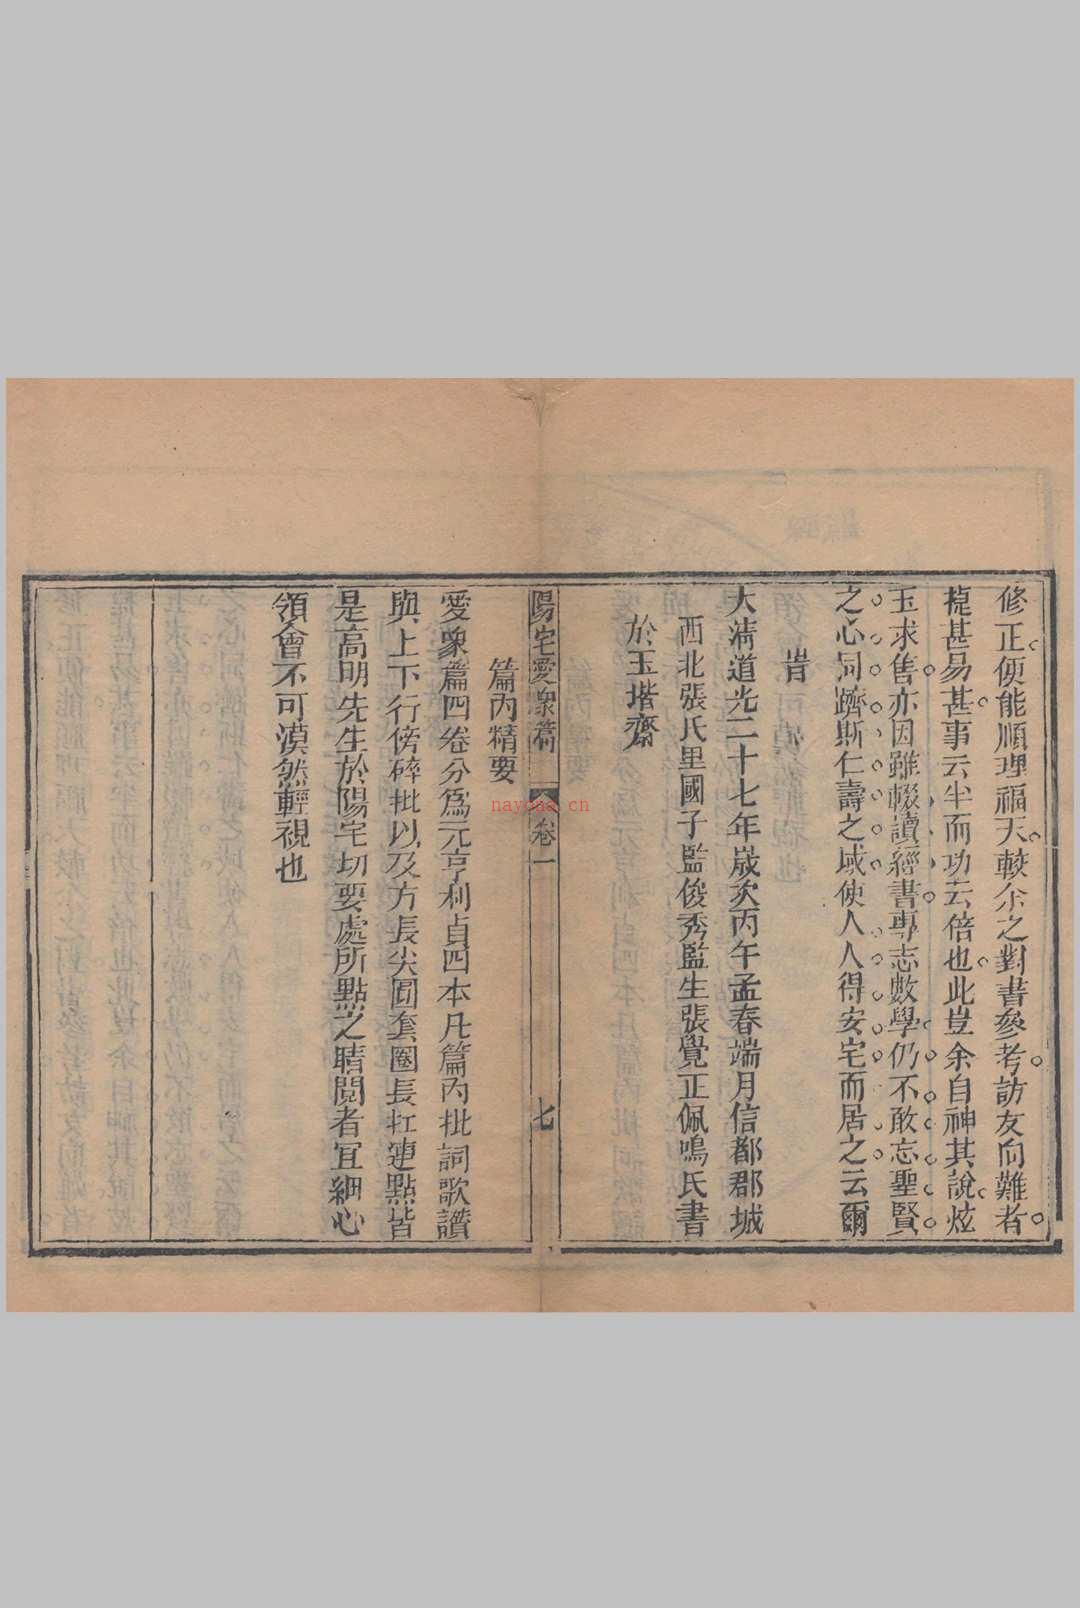 修正便能順理福天較余之對書叅考訪友向難者
捷甚易甚事云半而功云倍也此豈余自神其說炫
玉求售亦因雖輟讀經書專志數學仍不敢忘聖賢
之心同躋斯仁壽之域使人人得安宅而居之云爾
旹
大清道光二十七年歲次丙午孟春端月信都郡城
西北張氏里國子監俊秀監生張覺正佩鳴氏書
於玉堦齋
陽宅愛衆篇 卷一 七
篇內精要
愛衆篇四卷分爲元亨利貞四本凡篇內批詞歌讚
與上下行傍碎批以及方長尖圓套圈長扛連點皆
是高明先生於陽宅切要處所點之睛閱者宜細心
領會不可漠然輕視也
nayona.cn